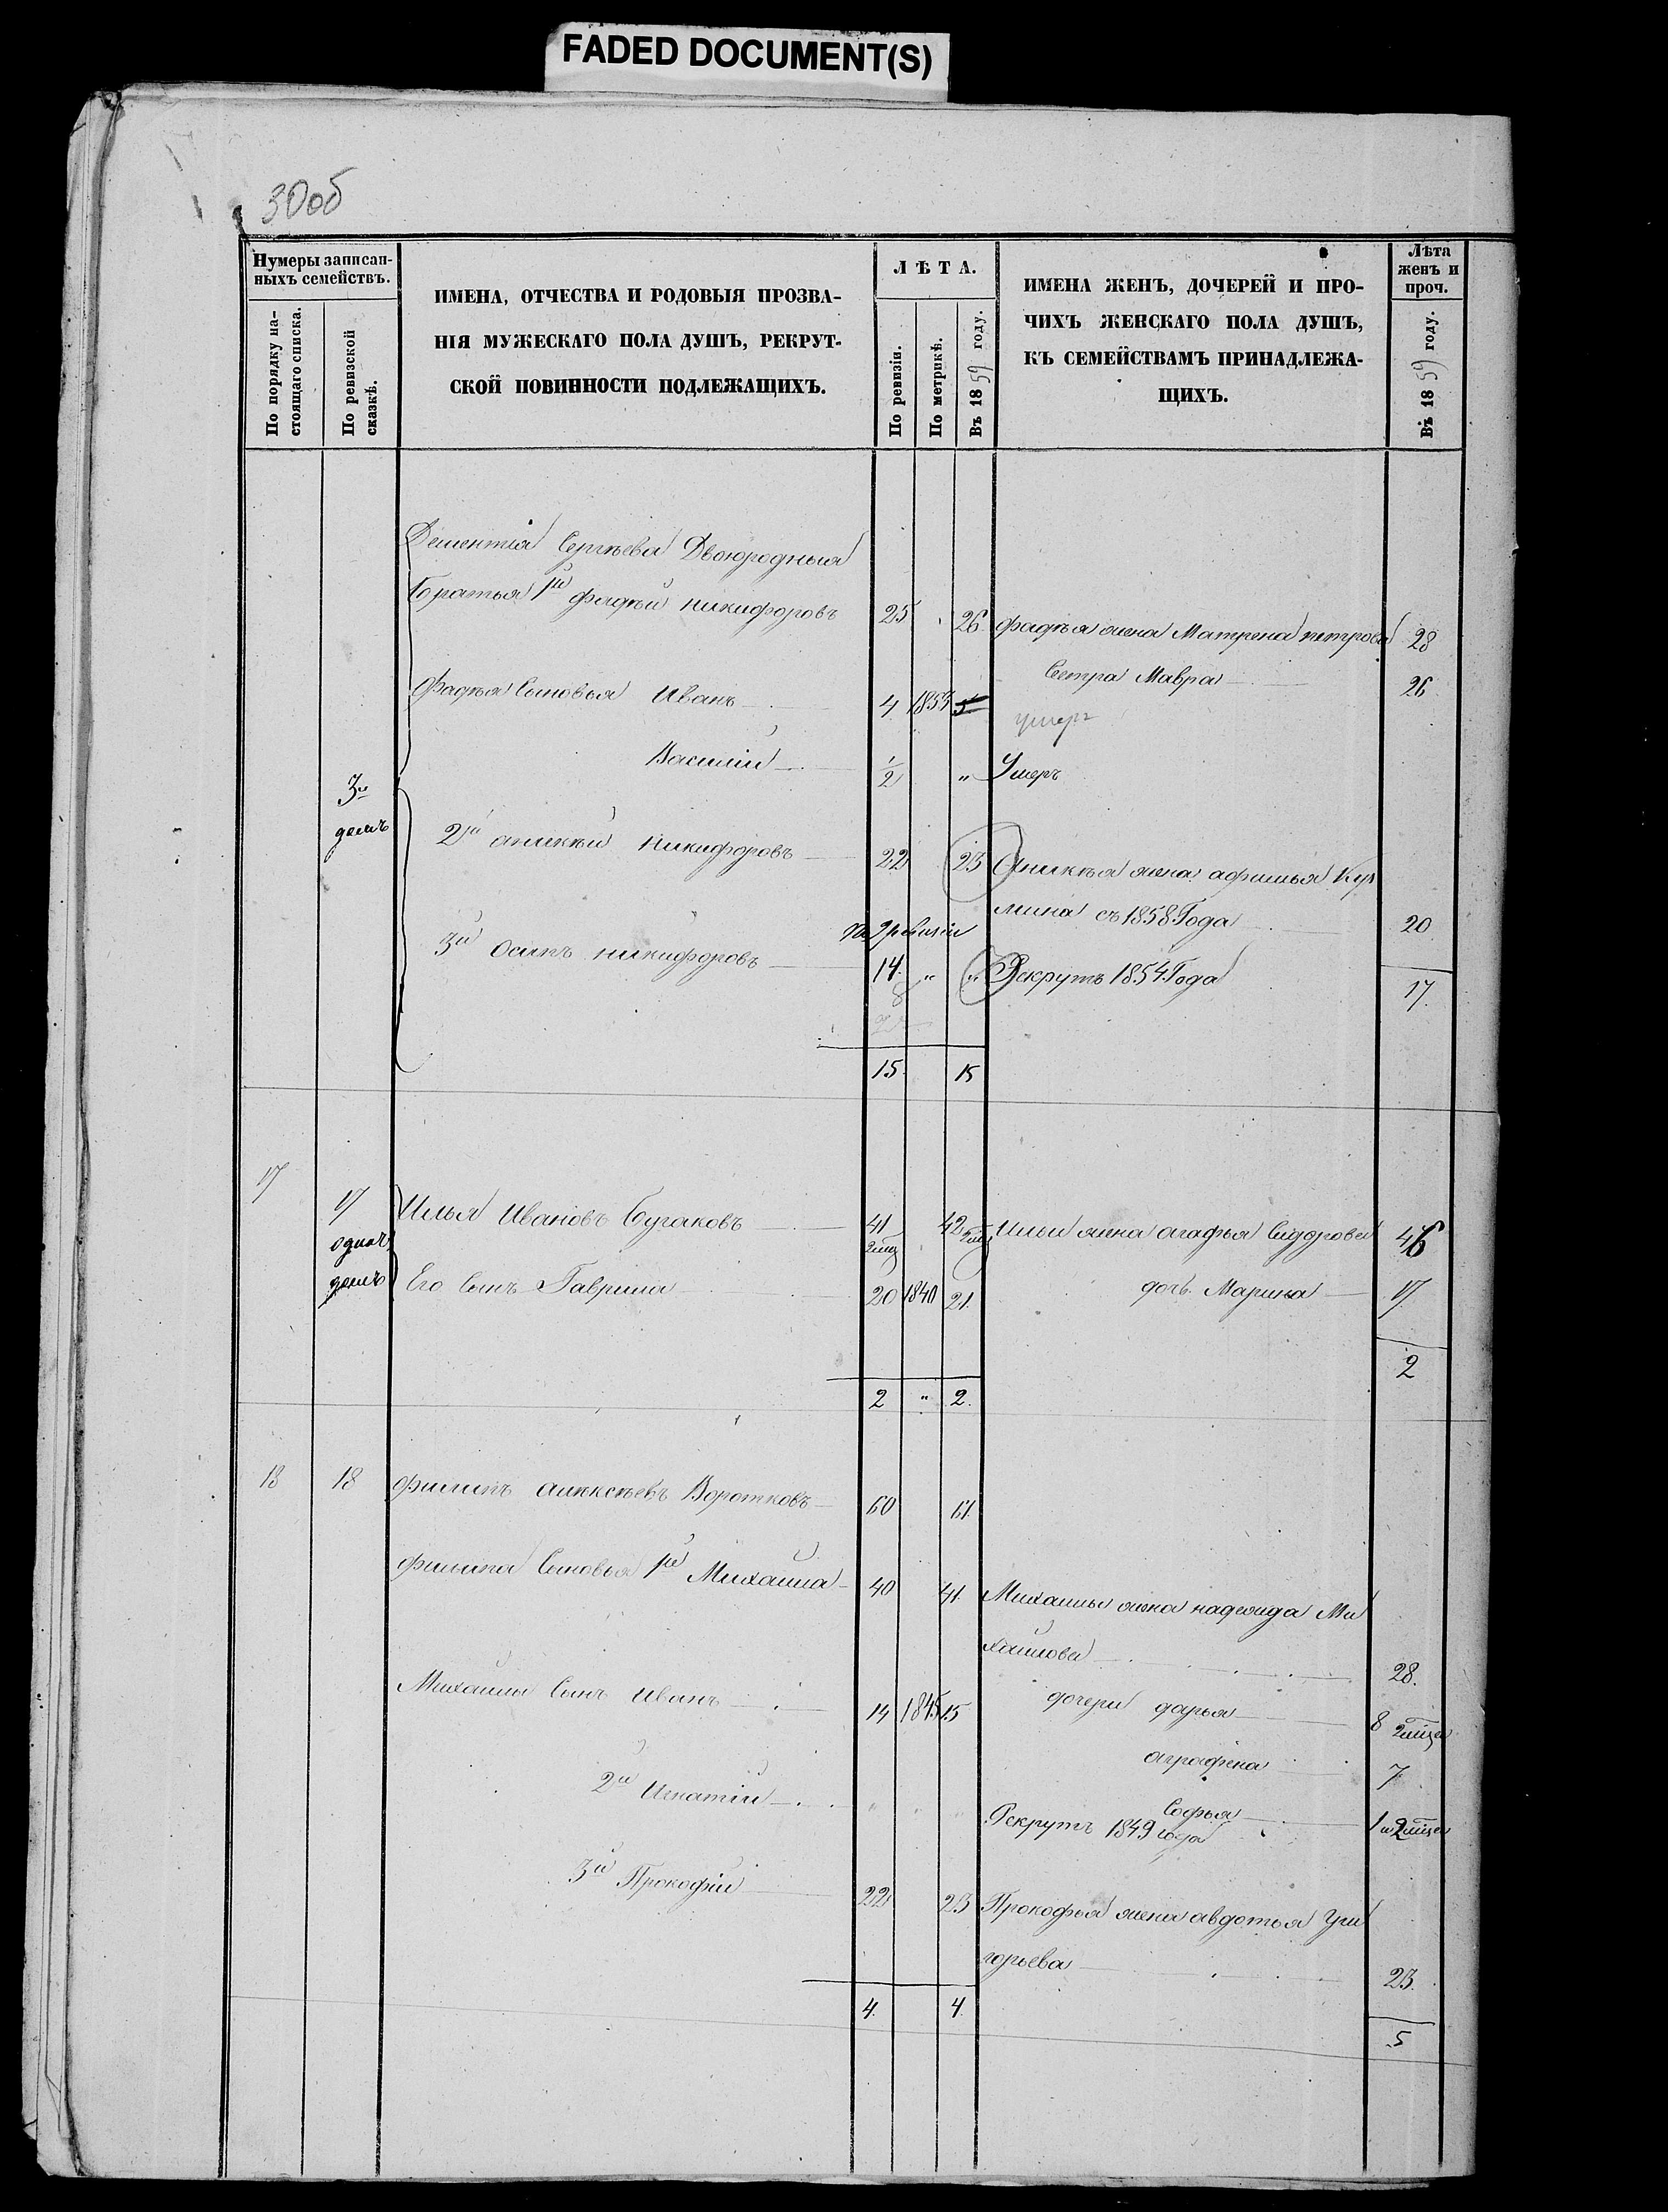 FADED DOCUMENT(S)
30об
Нумеры записан-
ныхъ семействъ.
По порядку на-
стоящаго списка.
По ревизской
сказкѣ.
ИМЕНА, ОТЧЕСТВА И РОДОВЫЯ ПРОЗВА-
НІЯ МУЖЕСКАГО ПОЛА ДУШЪ, РЕКРУТ-
СКОЙ ПОВИННОСТИ ПОДЛЕЖАЩИХЪ.
ЛѢТА.
По ревизіи.
По метрикѣ.
Въ 1859 году.
ИМЕНА ЖЕНЪ, ДОЧЕРЕЙ И ПРО-
ЧИХЪ ЖЕНСКАГО ПОЛА ДУШЪ,
КЪ СЕМЕЙСТВАМЪ ПРИНАДЛЕЖА-
ЩИХЪ.
Лѣта
женъ и
проч.
Въ 1859 году.
Дементія Сергѣева Двоюродныя
братья 1й фадѣй никифоровъ 25 26 фадѣя жена Матрена петрова 28
Сестра Мавра 26
Фадѣя Сыновья Иванъ 4 1853 5 умеръ
Василій 1/2 " Умеръ
3й
домъ
2й аникѣй никифоровъ 22 23 Аникѣя жена афимья Куз
мина съ 1858 Года 20
по 9 ревизіи
3й Осипъ никифоровъ 14 " " Рекрутъ 1854 Года
17
8
15 15
17 17 Илья Ивановъ Бугаковъ 41 42 Ильи жена агафья Сидорова 46
одинъ
домъ
2мц 2мц
Его Сынъ Гаврила 20 1840 21 дочь Марина 17
2
2 " 2
18 18 филипъ алексѣевъ Воротковъ 60 61
филипа Сыновья 1й Михайла 40 41 Михайлы жена надежда Ми
хайлова 28
Михайлы Сынъ иванъ 14 1845 15 дочери дарья 8 2мцъ
аграфена 7
2й Игнатій " " " Софья 1 и 2мцъ
Рекрутъ 1849 года
3й Прокофій 22 23 Прокофья жена авдотья Гри
горьева 23
4 4
5